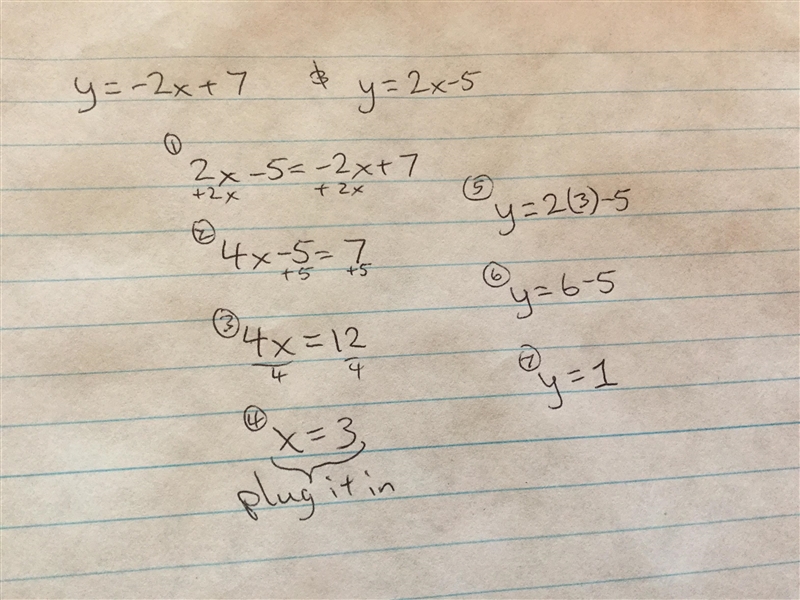 y = -2x + 7 & y = 2x - 5
① 2x - 5 = -2x + 7
+2x +2x
② 4x - 5 = 7
+5 +5
③ 4x = 12
4 4
④ x = 3
plug it in
⑤ y = 2(3) - 5
⑥ y = 6 - 5
⑦ y = 1